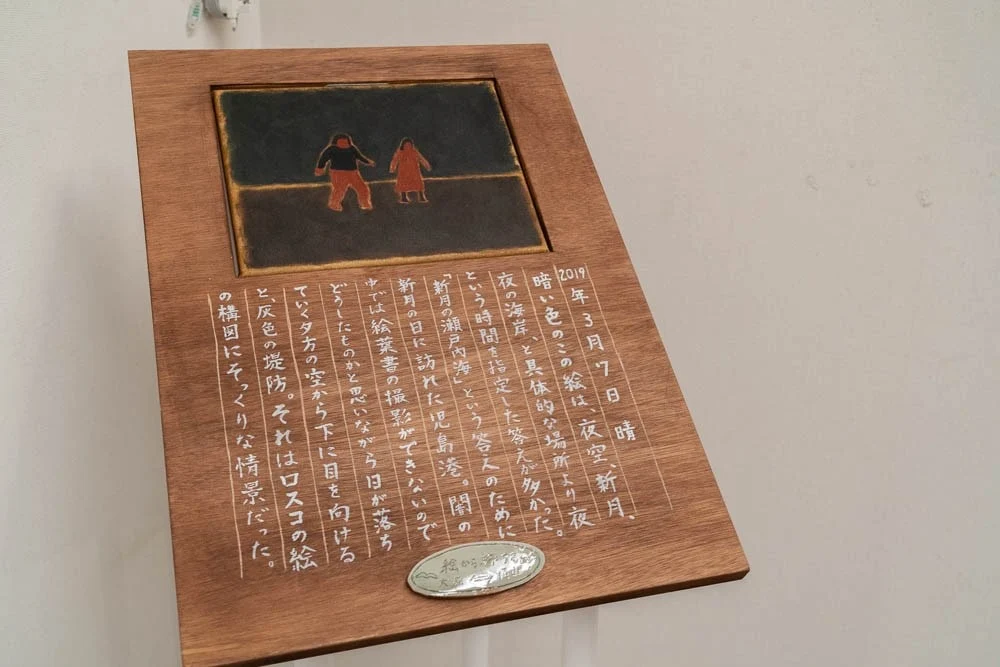 2019年3月7日 晴
暗い色のこの絵は、夜空、新月、
夜の海岸、と具体的な場所より夜
という時間を指定した答えが多かった。
「新月の瀬戸内海」という答えのために
新月の日に訪れた児島港。闇の
中では絵葉書の撮影ができないので
どうしたものかと思いながら日が落ち
ていく夕方の空から下に目を向ける
と、灰色の堤防。それはロスコの絵
の構図にそっくりな情景だった。
絵から